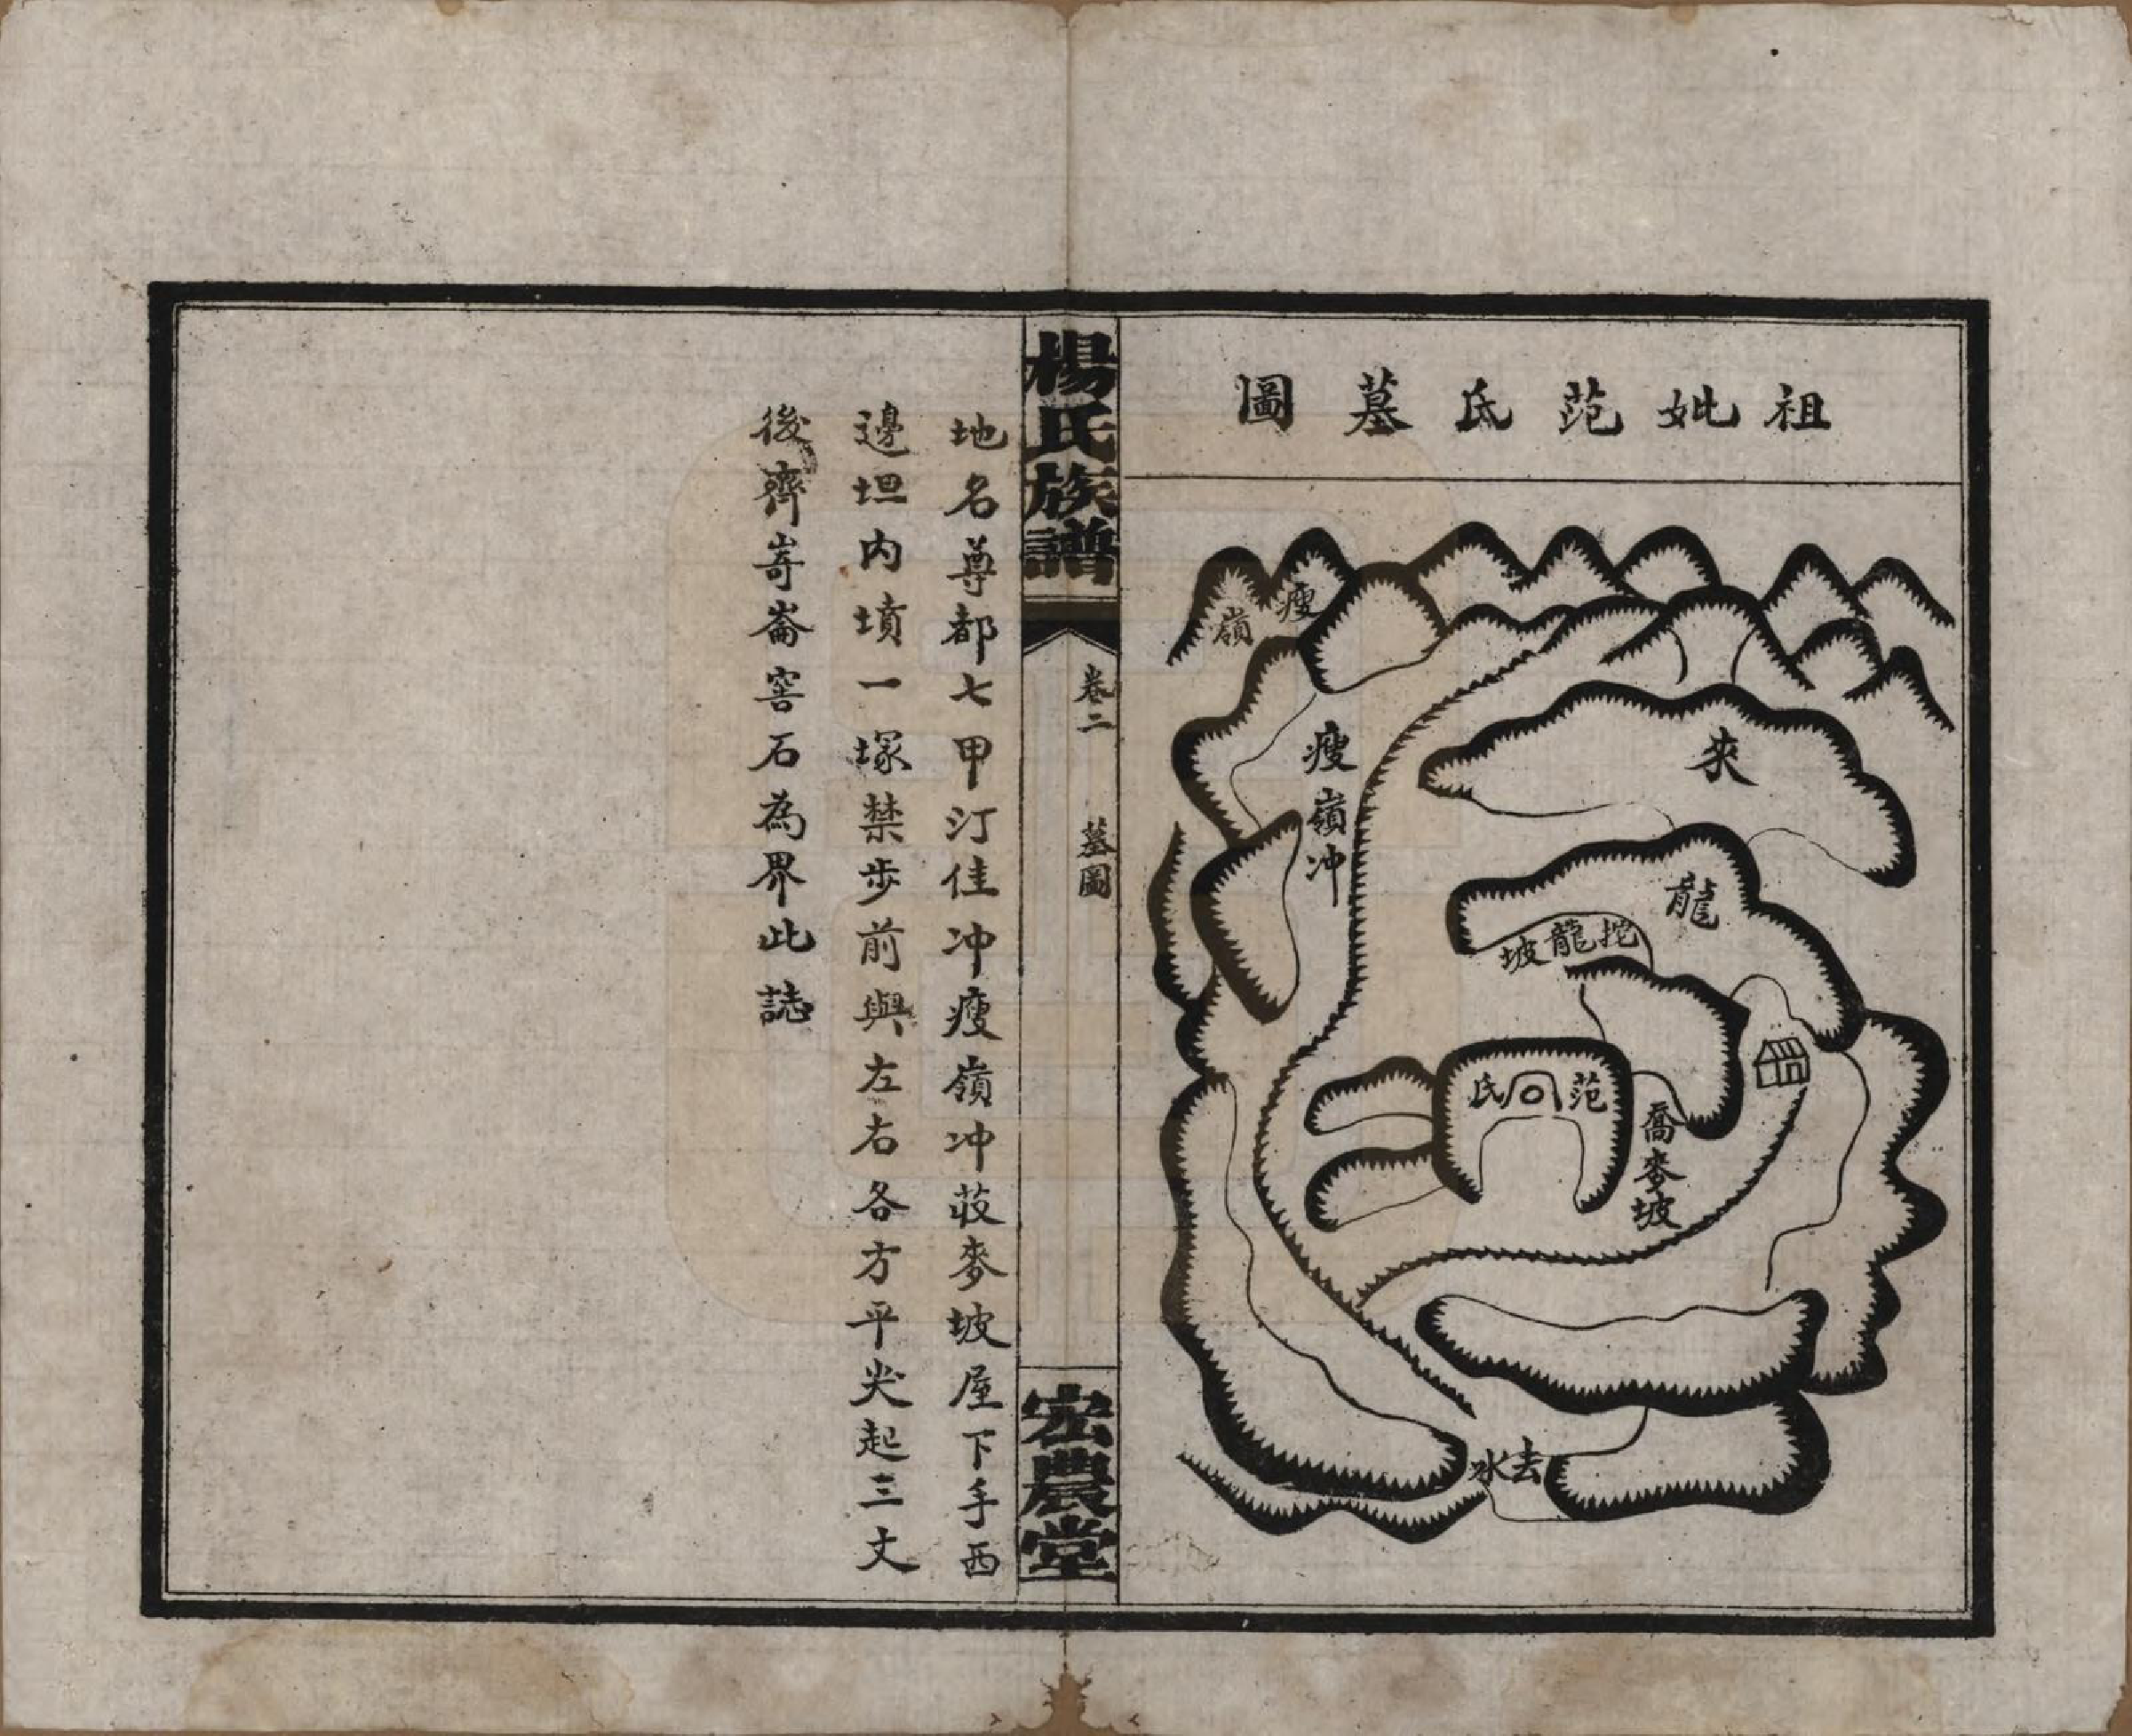 祖妣范氏墓圖
瘦嶺
瘦嶺冲
來
龍
挖龍坡
范氏
喬麥坡
去水
楊氏族譜
卷二
墓圖
宏農堂
地名尊都七甲汀佳冲瘦嶺冲荍麥坡屋下手西
邊坦内墳一塚禁步前與左右各方平尖起三丈
後齊嵜崙窖石為界此誌